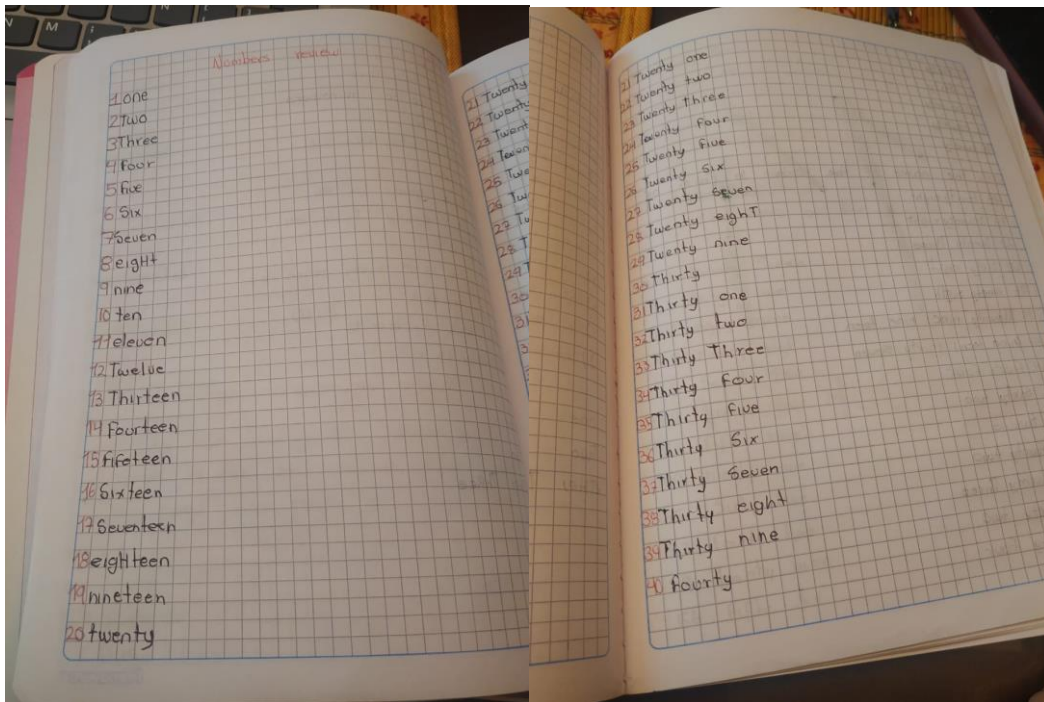 Numbers review
1 one
2 Two
3 Three
4 four
5 five
6 Six
7 Seven
8 eigHt
9 nine
10 ten
11 eleven
12 Twelve
13 Thirteen
14 fourteen
15 fifeteen
16 Sixteen
17 Seventeen
18 eigHteen
19 nineteen
20 twenty
21 Twenty
22 Twenty
23 Twent
25 Twe
28 T
29 T
30
21 Twenty one
22 Twenty two
23 Twenty three
24 Twenty four
25 Twenty five
26 Twenty Six
27 Twenty Seven
28 Twenty eighT
29 Twenty nine
30 Thirty
31 Thirty one
32 Thirty two
33 Thirty Three
34 Thirty four
35 Thirty five
36 Thirty Six
37 Thirty Seven
38 Thirty eight
39 Thirty nine
40 fourty